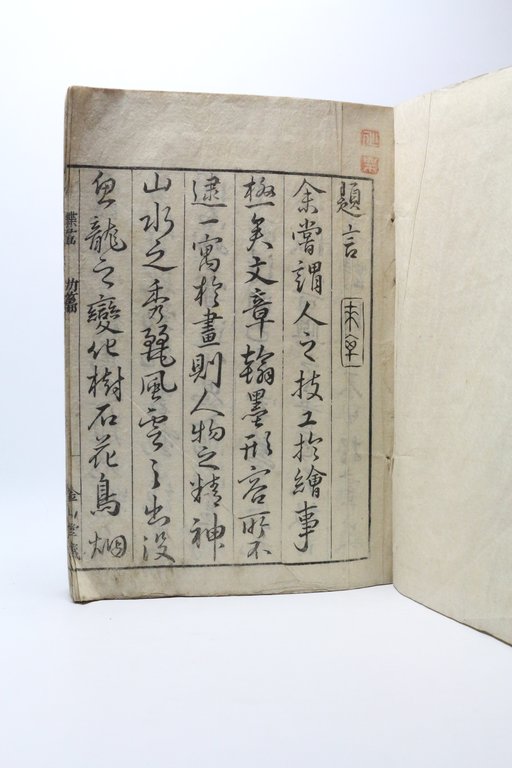 題言
余嘗謂人之技工於繪事
極矣文章翰墨形容所不
逮一寓於畫則人物之精神
山水之秀麗風雲之出没
魚龍之變化樹石花鳥烟